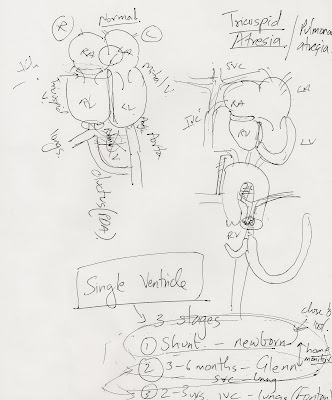 Normal
R
L
Tricuspid
Atresia / Pulmonary
atresia
RA
LA
mitral V.
RV
LV
Aorta
lungs
ductus (PDA)
SVC
IVC
RA
LA
RV
LV
RV
Single Ventricle
3 stages
① Shunt - newborn
② 3-6 months - Glenn
SVC - lung
③ 2-3 yrs IVC - lungs (Fontan)
close to
home
monitor